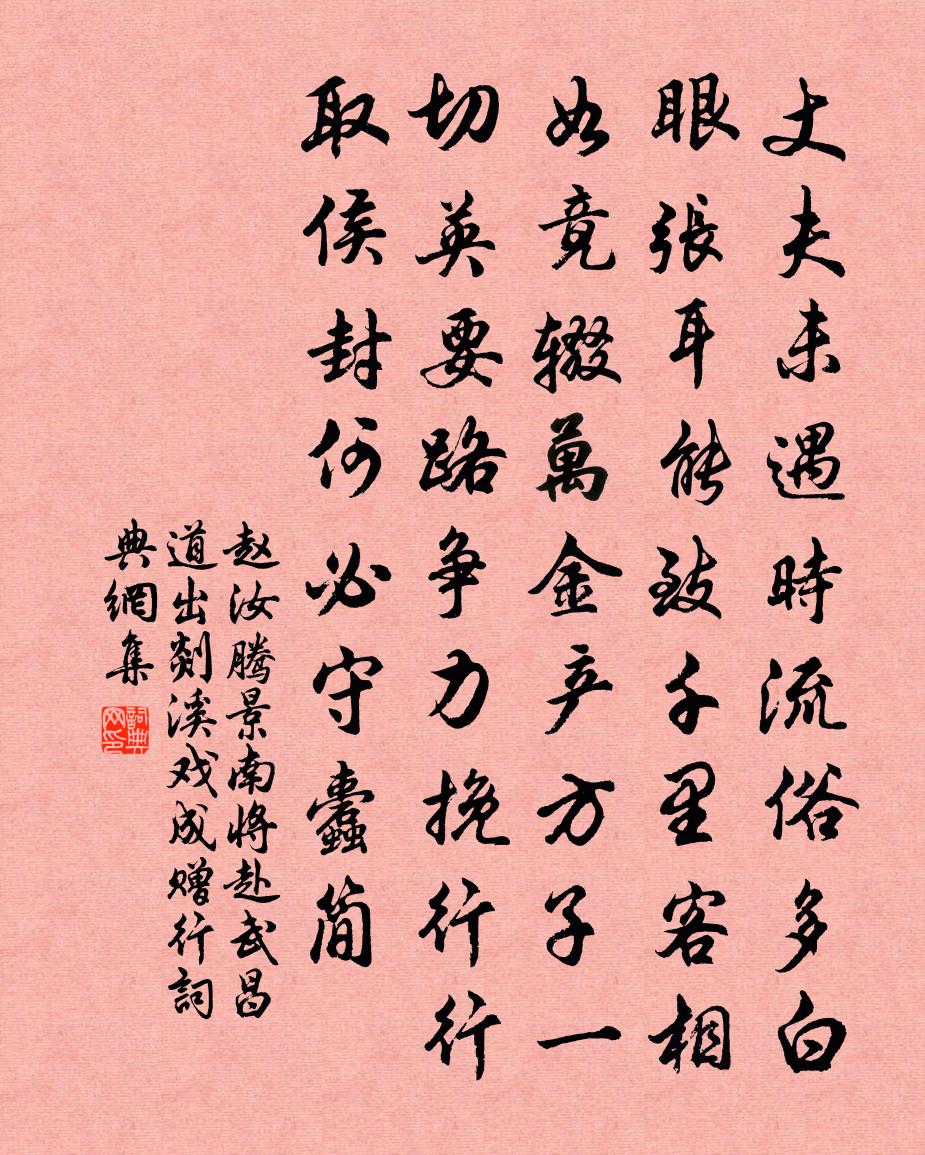 丈夫未遇時流俗多白
眼張耳能致千里客相
如竟辍萬金产方子一
切英要路争力挽行行
取侯封何必守蠹简
赵汝騰景南将赴武昌
道出剡溪戏成赠行詞
典網集
詞典
网印